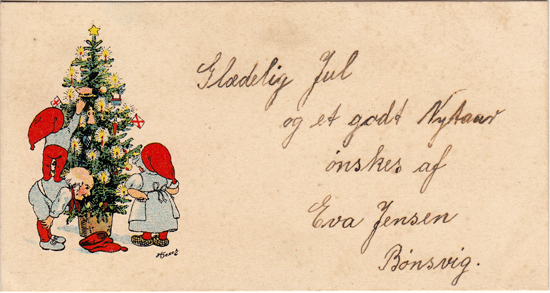 Glædelig Jul
og et godt Nytaar
ønskes af
Eva Jensen
Bønsvig.